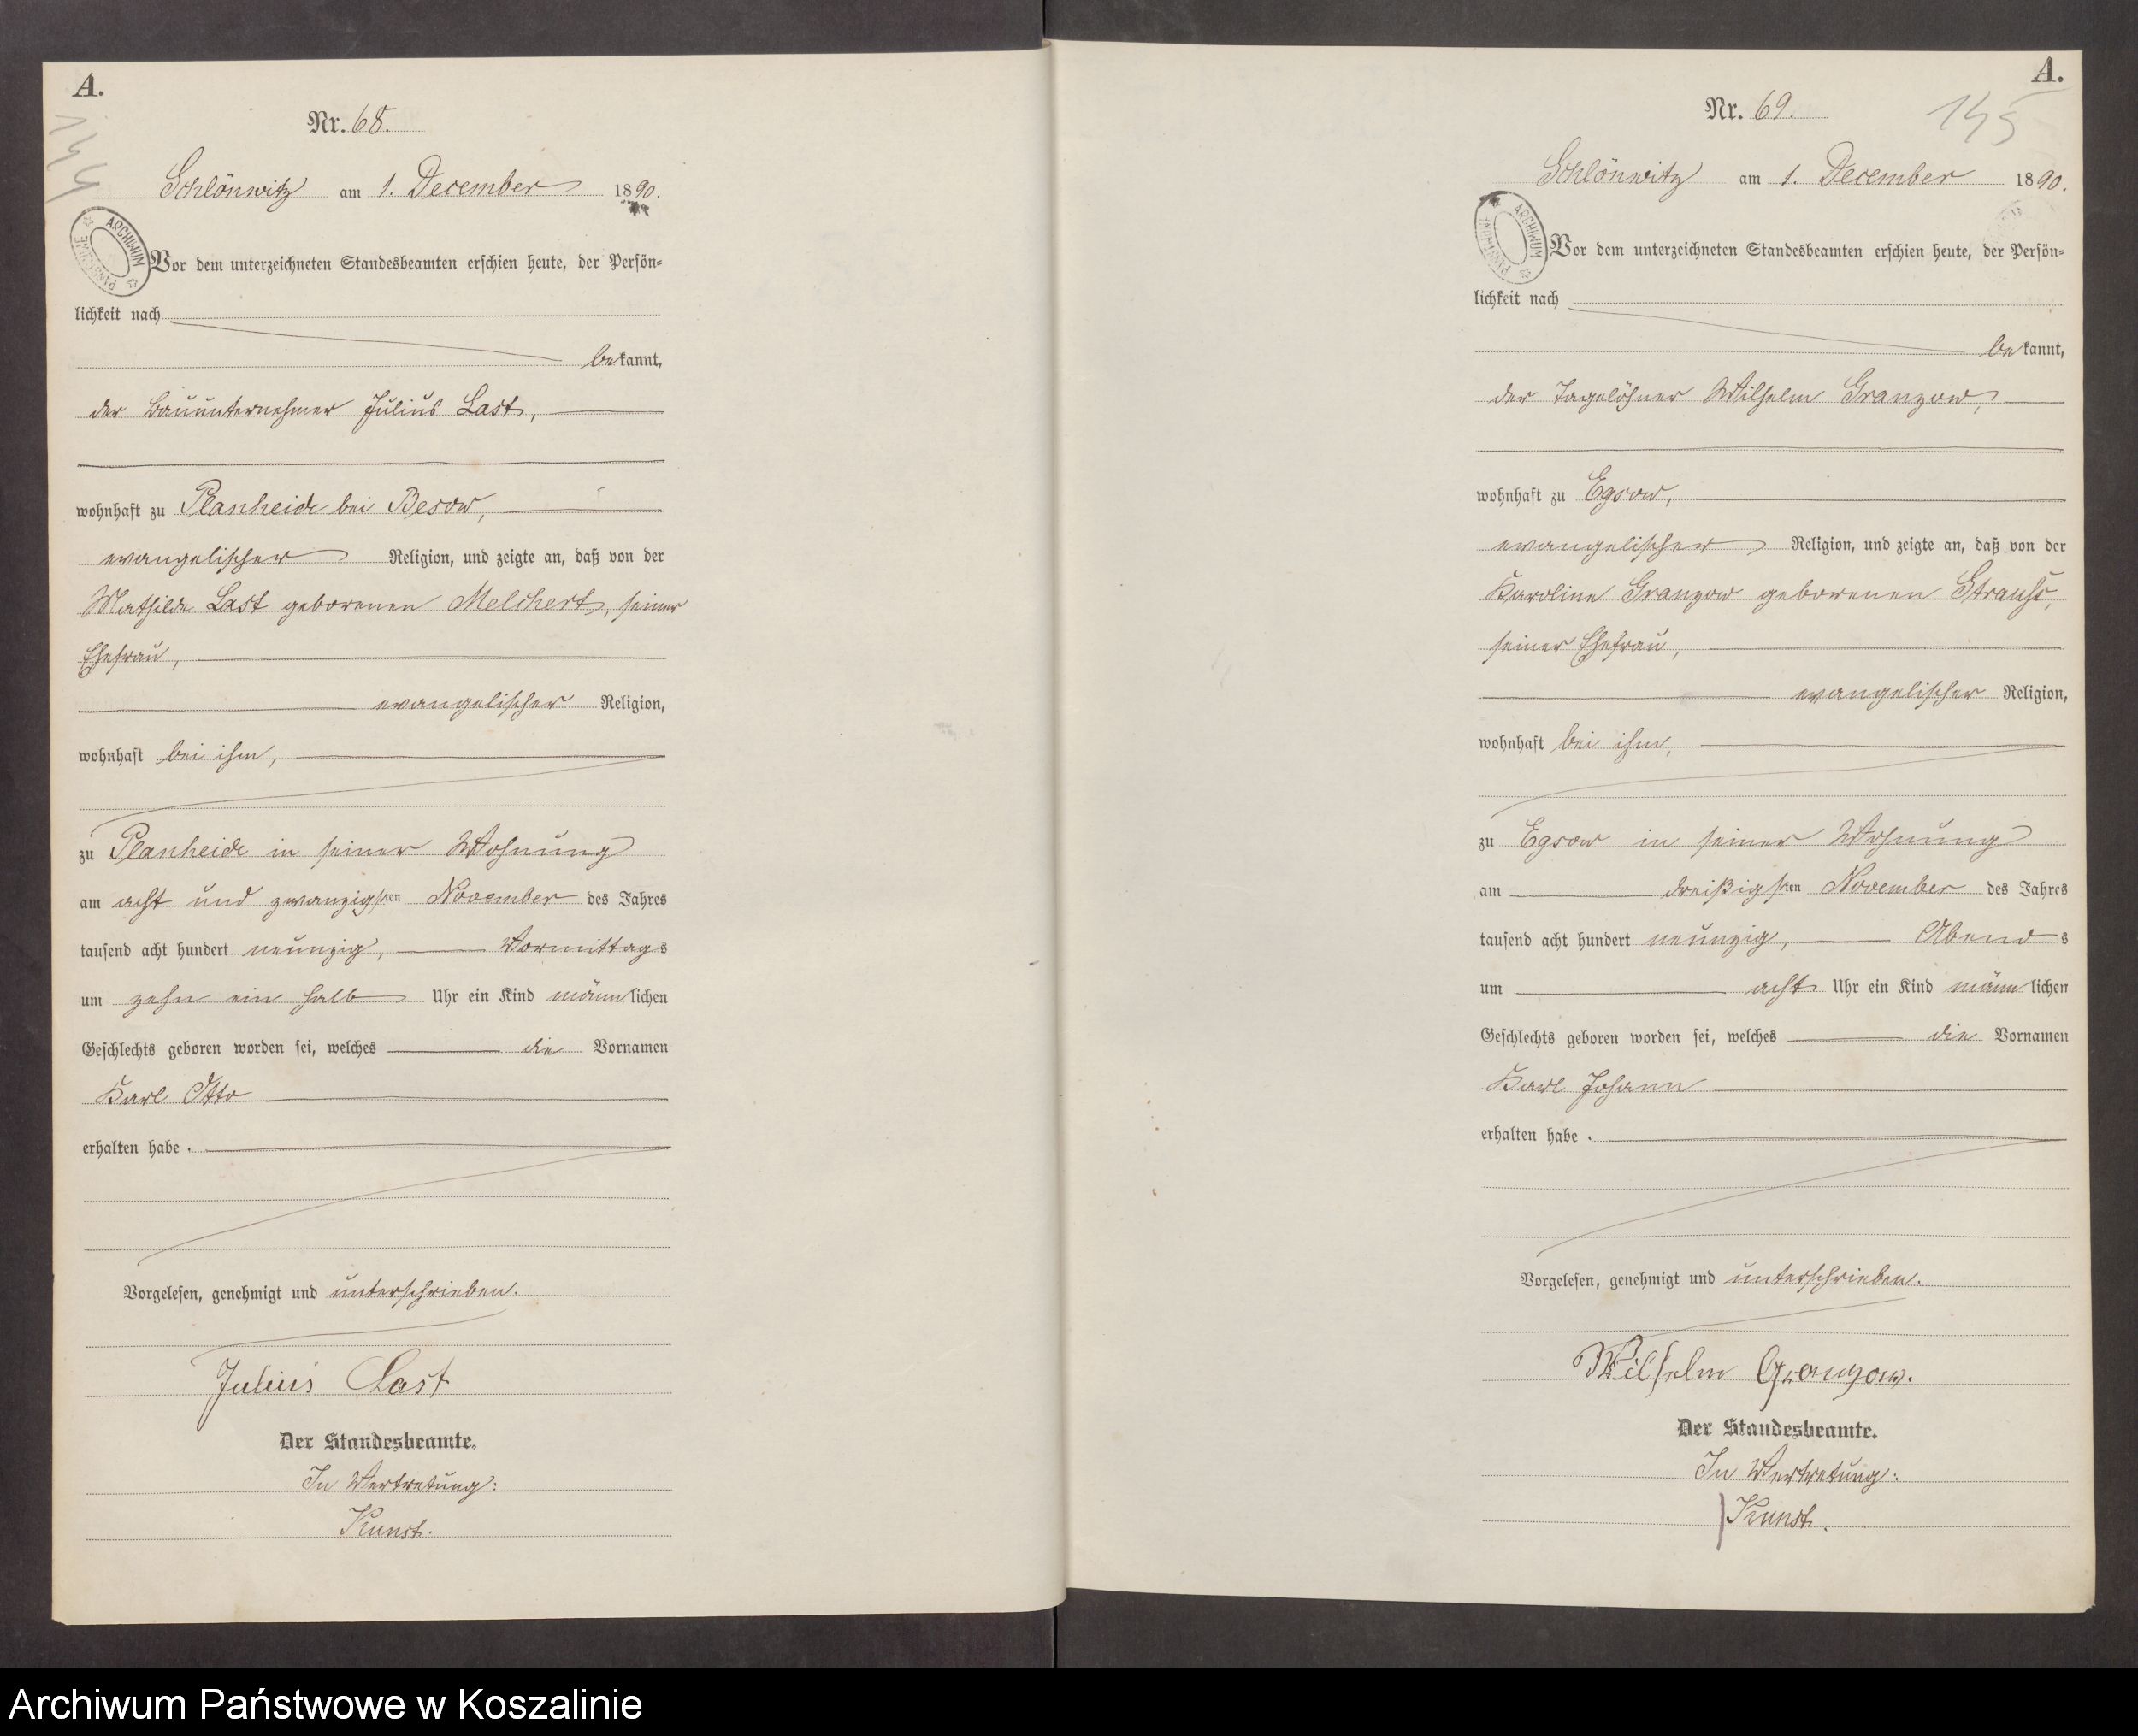 A.
144
Nr. 68.
Schlönwitz am 1. December 1890.
ARCHIWUM
Vor dem unterzeichneten Standesbeamten erschien heute, der Persön=
lichkeit nach
bekannt,
der Bauunternehmer Julius Last,
wohnhaft zu Planheide bei Besow,
evangelischer Religion, und zeigte an, daß von der
Mathilde Last geborenen Melchert, seiner
Ehefrau,
evangelischer Religion,
wohnhaft bei ihm,
zu Planheide in seiner Wohnung
am acht und zwanzigsten November des Jahres
tausend acht hundert neunzig, Vormittags
um zehn ein halb Uhr ein Kind männlichen
Geschlechts geboren worden sei, welches die Vornamen
Karl Otto
erhalten habe.
Vorgelesen, genehmigt und unterschrieben.
Julius Last
Der Standesbeamte.
In Vertretung:
Kunst.
A.
145
Nr. 69.
Schlönwitz am 1. December 1890.
ARCHIWUM
Vor dem unterzeichneten Standesbeamten erschien heute, der Persön=
lichkeit nach
bekannt,
der Tagelöhner Wilhelm Granzow,
wohnhaft zu Egsow,
evangelischer Religion, und zeigte an, daß von der
Karoline Granzow geborenen Strauß,
seiner Ehefrau,
evangelischer Religion,
wohnhaft bei ihm,
zu Egsow in seiner Wohnung
am dreißigsten November des Jahres
tausend acht hundert neunzig, Abends
um acht Uhr ein Kind männlichen
Geschlechts geboren worden sei, welches die Vornamen
Karl Johann
erhalten habe.
Vorgelesen, genehmigt und unterschrieben.
Wilhelm Granzow.
Der Standesbeamte.
In Vertretung:
Kunst.
Archiwum Państwowe w Koszalinie